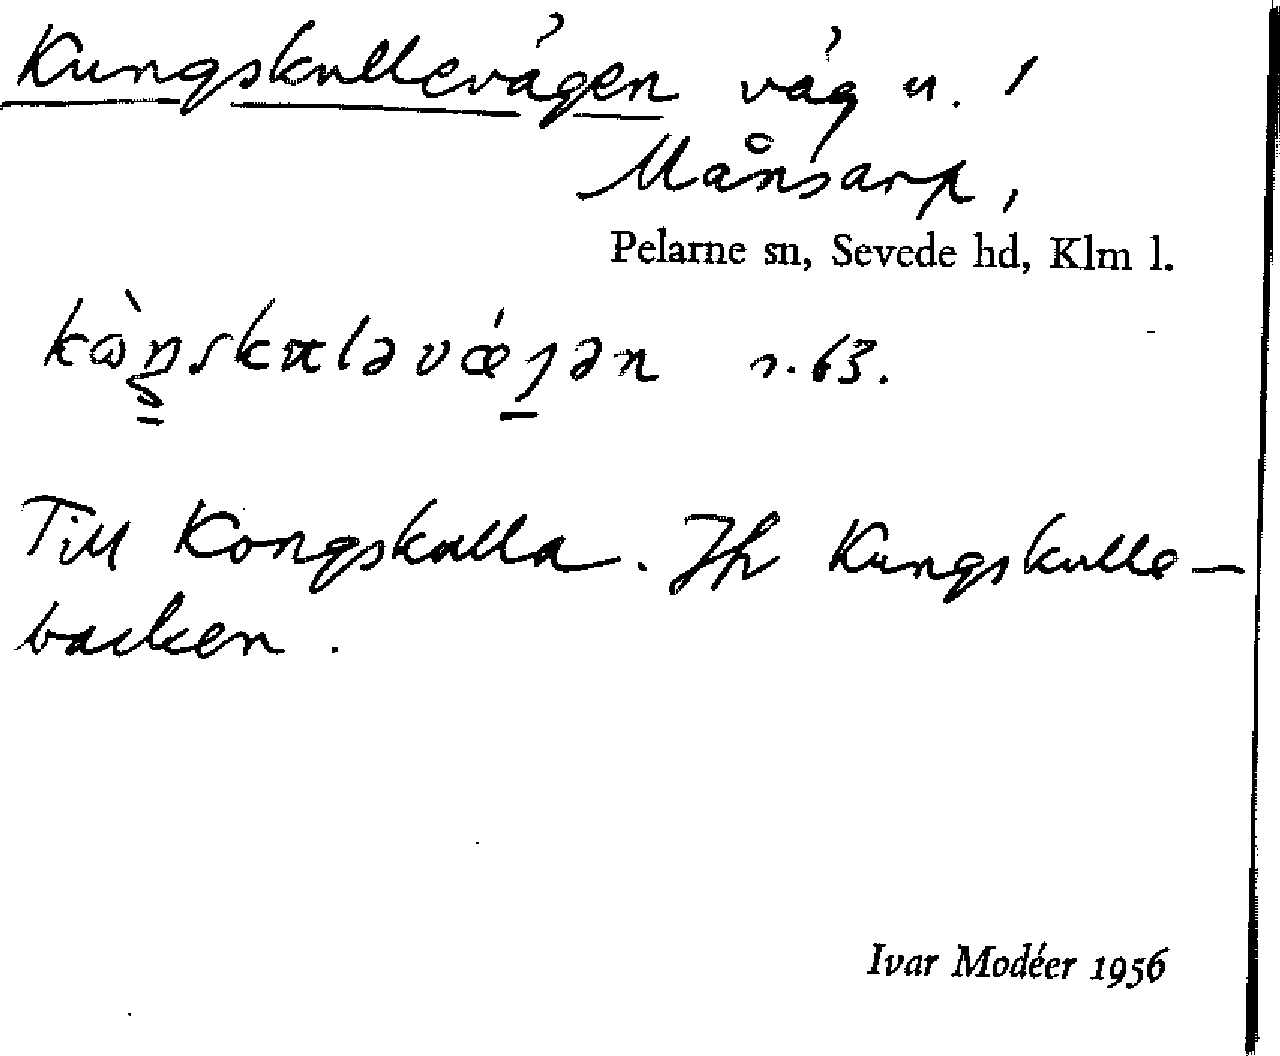 Kungskullevägen väg u. /
Månsarp,
Pelarne sn, Sevede hd, Klm l.
s. 63.
Till Kongskulla. Jfr Kungskulle-
backen.
Ivar Modéer 1956